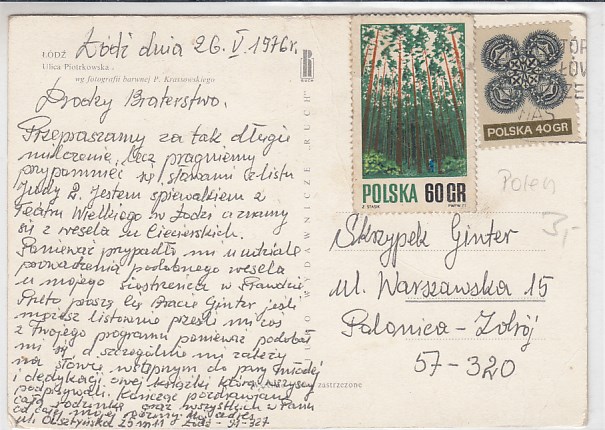 ŁÓDŹ
Ulica Piotrkowska
wg fotografii barwnej P. Krassowskiego
Łódź dnia 26.V.1976r.
Drodzy Braterstwo.
Przepraszamy za tak długie
milczenie, lecz pragniemy
przypomnieć się słowami z listu
Judy 2. Jestem śpiewakiem z
Teatru Wielkiego w Łodzi a znamy
się z wesela u Ciecierskich.
Ponieważ przypadło mi w udziale
prowadzenia podobnego wesela
u mojego siostrzeńca w
Przeto proszę Cię Bracie Ginter, jeśli
możesz listownie prześlij mi coś
z Twojego programu ponieważ podobał
mi się, a szczególnie mi zależy
na słowie wstępnym do pary młodej
i dedykacji owej książki którą wszyscy
podpisywali. Kończąc pozdrawiamy
całą rodzinkę oraz wszystkich w Panu
od całej mojej rodziny Mój adres
ul. Olsztyńska 25 m 11 Łódź - 91-327
WYDAWNICZE „RUCH”
zastrzeżone
RUCH
POLSKA 60 GR
POLSKA 40 GR
Polen
3,-
Skrzypek Ginter
ul. Warszawska 15
Polanica-Zdrój
57-320